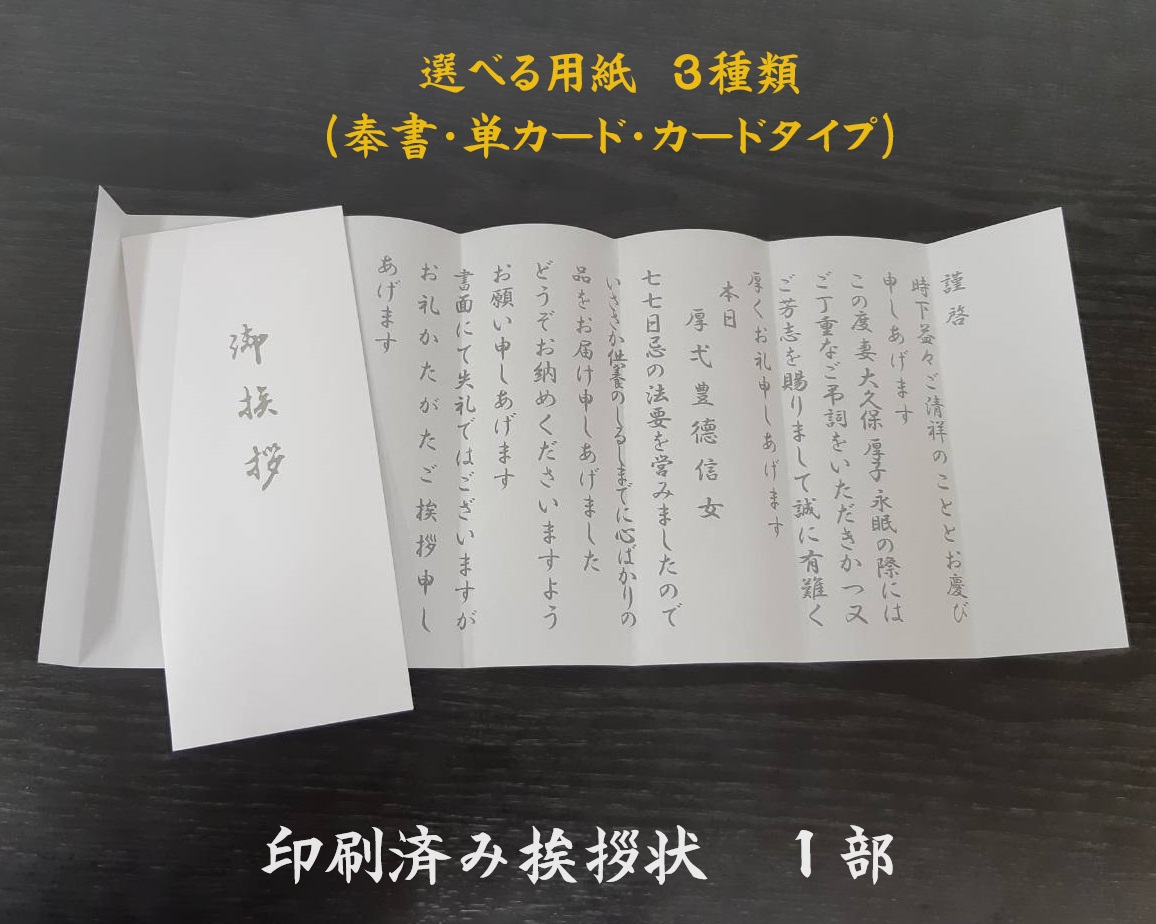 選べる用紙　３種類
(奉書・単カード・カードタイプ)
謹啓
時下益々ご清祥のこととお慶び
申しあげます
この度 妻 大久保 厚子 永眠の際には
ご丁重なご弔詞をいただきかつ又
ご芳志を賜りまして誠に有難く
厚くお礼申しあげます
本日
厚弍豊徳信女
七七日忌の法要を営みましたので
いささか供養のしるしまでに心ばかりの
品をお届け申しあげました
どうぞお納めくださいますよう
お願い申しあげます
書面にて失礼ではございますが
お礼かたがたご挨拶申し
あげます
御挨拶
印刷済み挨拶状　１部